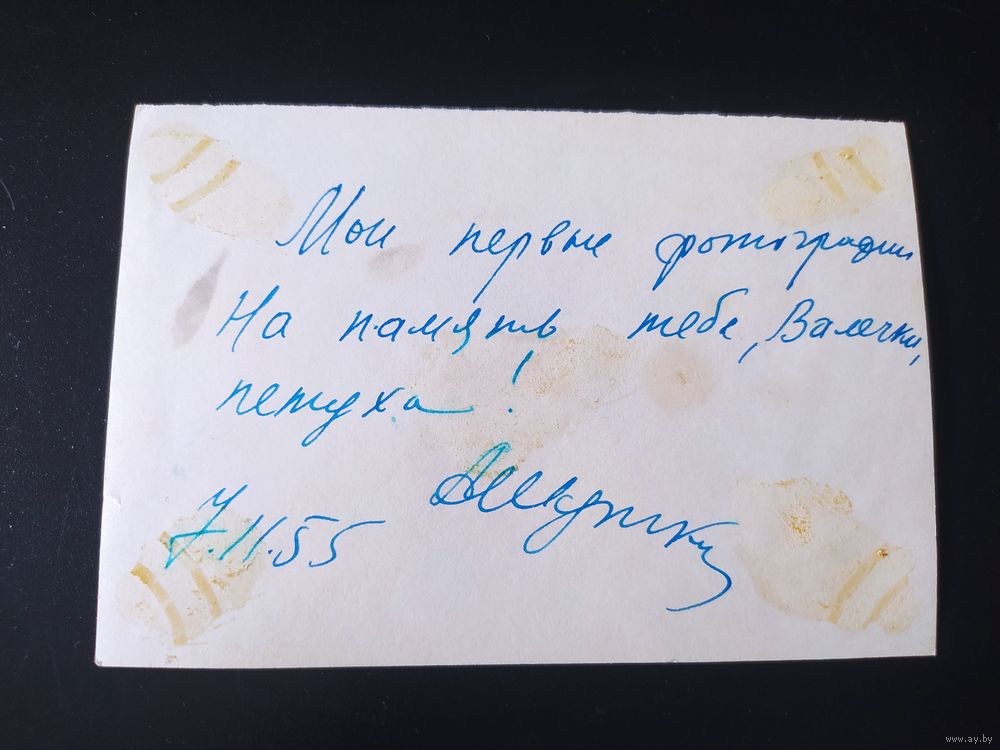 Мои первые фотографии
На память тебе, Валечка,
петуха!
7.11.55
www.ay.by